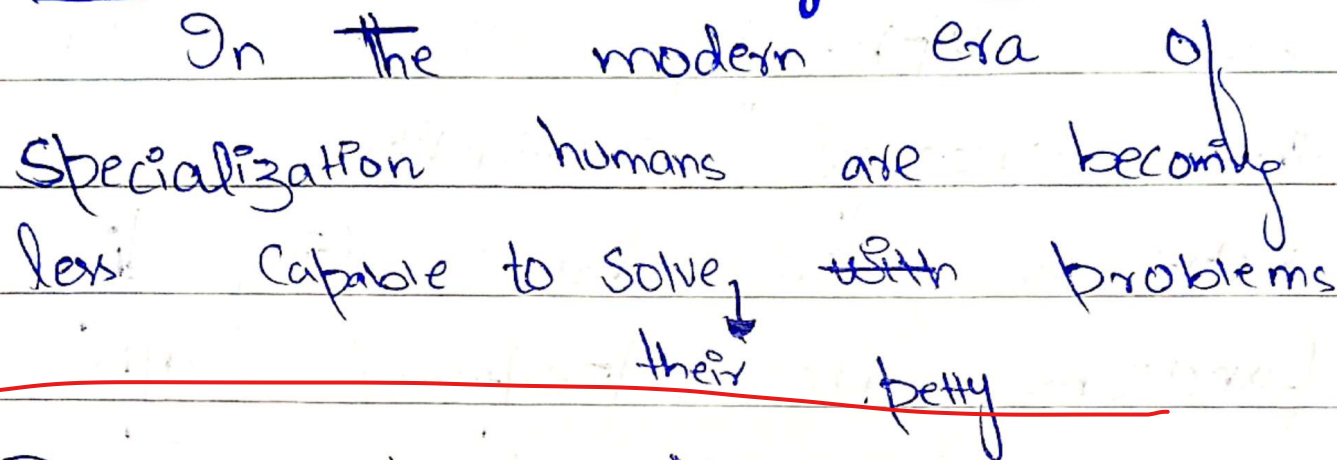 In the modern era of
specialization humans are becoming
less capable to solve, with problems
their petty